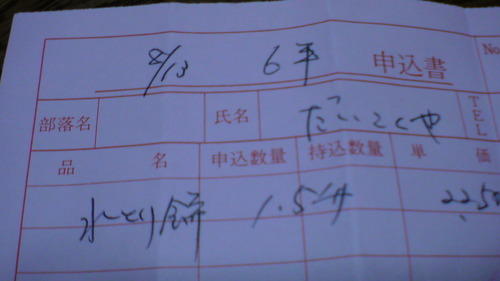 8/13 6平 申込書 No
部落名 氏名 TEL
品名 申込数量 持込数量 単価
水とり餅 1.5升